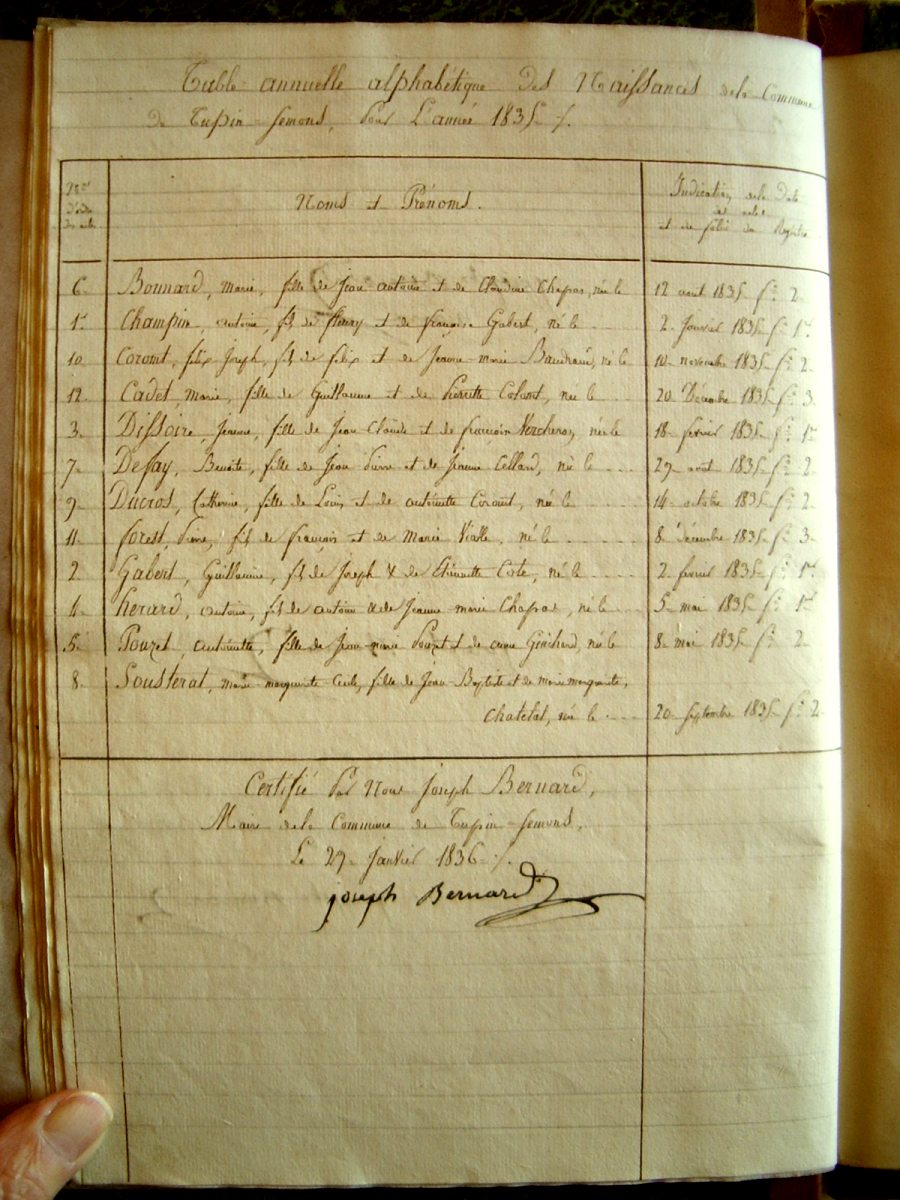 Table annuelle alphabétique des Naissances de la Commune
de Tupin-Semons, pour L'année 1835 /.
Nos d'ordre des actes
Noms et Prénoms.
Indication de la Date
des actes
et du folio du Registre
6 Bonnard, marie, fille de Jean antoine et de Claudine Chapas, née le 12 aout 1835 fo 2
1er Champin, antoine, fils de fleury et de françoise Gabert, né le 2 Janvier 1835 fo 1er
10 Coront, felix Joseph, fils de felix et de Jeanne-marie Baudrand, né le 10 novembre 1835 fo 2
12 Cadet, Marie, fille de Guillaume et de pierrette née le 20 Décembre 1835 fo 3
3 Dissoire, Jeanne, fille de Jean Claude et de Vercheras, née le 18 fevrier 1835 fo 1er
7 Defay, Benoite, fille de Jean pierre et de Jeanne Cellard, né le 27 aout 1835 fo 2
9 Ducros, Catherine, fille de Louis et de antoinette Coront, née le 14 octobre 1835 fo 2
11 forest, pierre, fils de françois et de Marie Vialle, né le 8 décembre 1835 fo 3
2 Gabert, Guillaume, fils de Joseph & de Etiennette Coste, né le 2 fevrier 1835 fo 1er
4 herard, antoine, fils de antoine & de Jeanne-marie Chapas, né le 5 mai 1835 fo 1er
5 Pouzet, antoinette, fille de Jean-marie Pouzet et de anne Guichard, née le 8 mai 1835 fo 2
8 Sousterat, marie-marguerite Cecile, fille de Jean-Baptiste et de marie marguerite,
Chatelet, née le 20 Septembre 1835 fo 2
Certifié par Nous Joseph Bernard,
Maire de la Commune de Tupin-Semons,
Le 27 Janvier 1836 /.
joseph Bernard